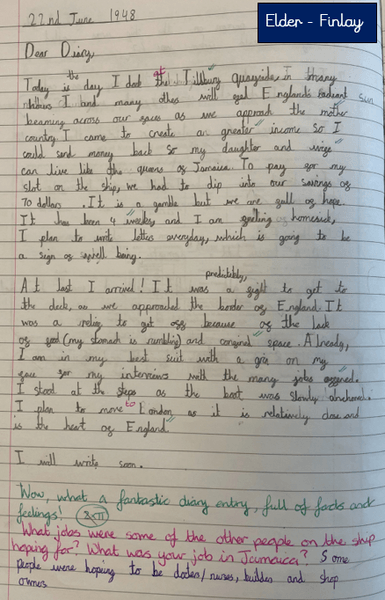 Elder - Finlay
22nd June 1948
Dear Diary,
Today is the day I dock at the Tillbury quayside, in many
I and many others will feel England's radiant sun
beaming across our faces as we approach the mother
country. I came to create a greater income so I
could send money back so my daughter and wife
can live like the queens of Jamaica. To pay for my
slot on the ship, we had to dip into our savings of
70 dollars. It is a gamble but we are full of hope.
It has been 4 weeks, and I am feeling homesick,
I plan to write letters everyday, which is going to be
a sign of well being.
At last I arrived! It was a fight to get to
the deck, as predictibly, we approached the border of England. It
was a relief to get off because of the lack
of food (my stomach is rumbling) and confined space. Already,
I am in my best suit with a grin on my
face for my interviews with the many jobs offered.
I stood at the steps as the boat was slowly anchored.
I plan to move to London as it is relatively close and
is the heart of England.
I will write soon.
Wow, what a fantastic diary entry, full of facts and
feelings!
What jobs were some of the other people on the ship
hoping for? What was your job in Jamaica? Some
people were hoping to be doctors/nurses, builders and shop
owners